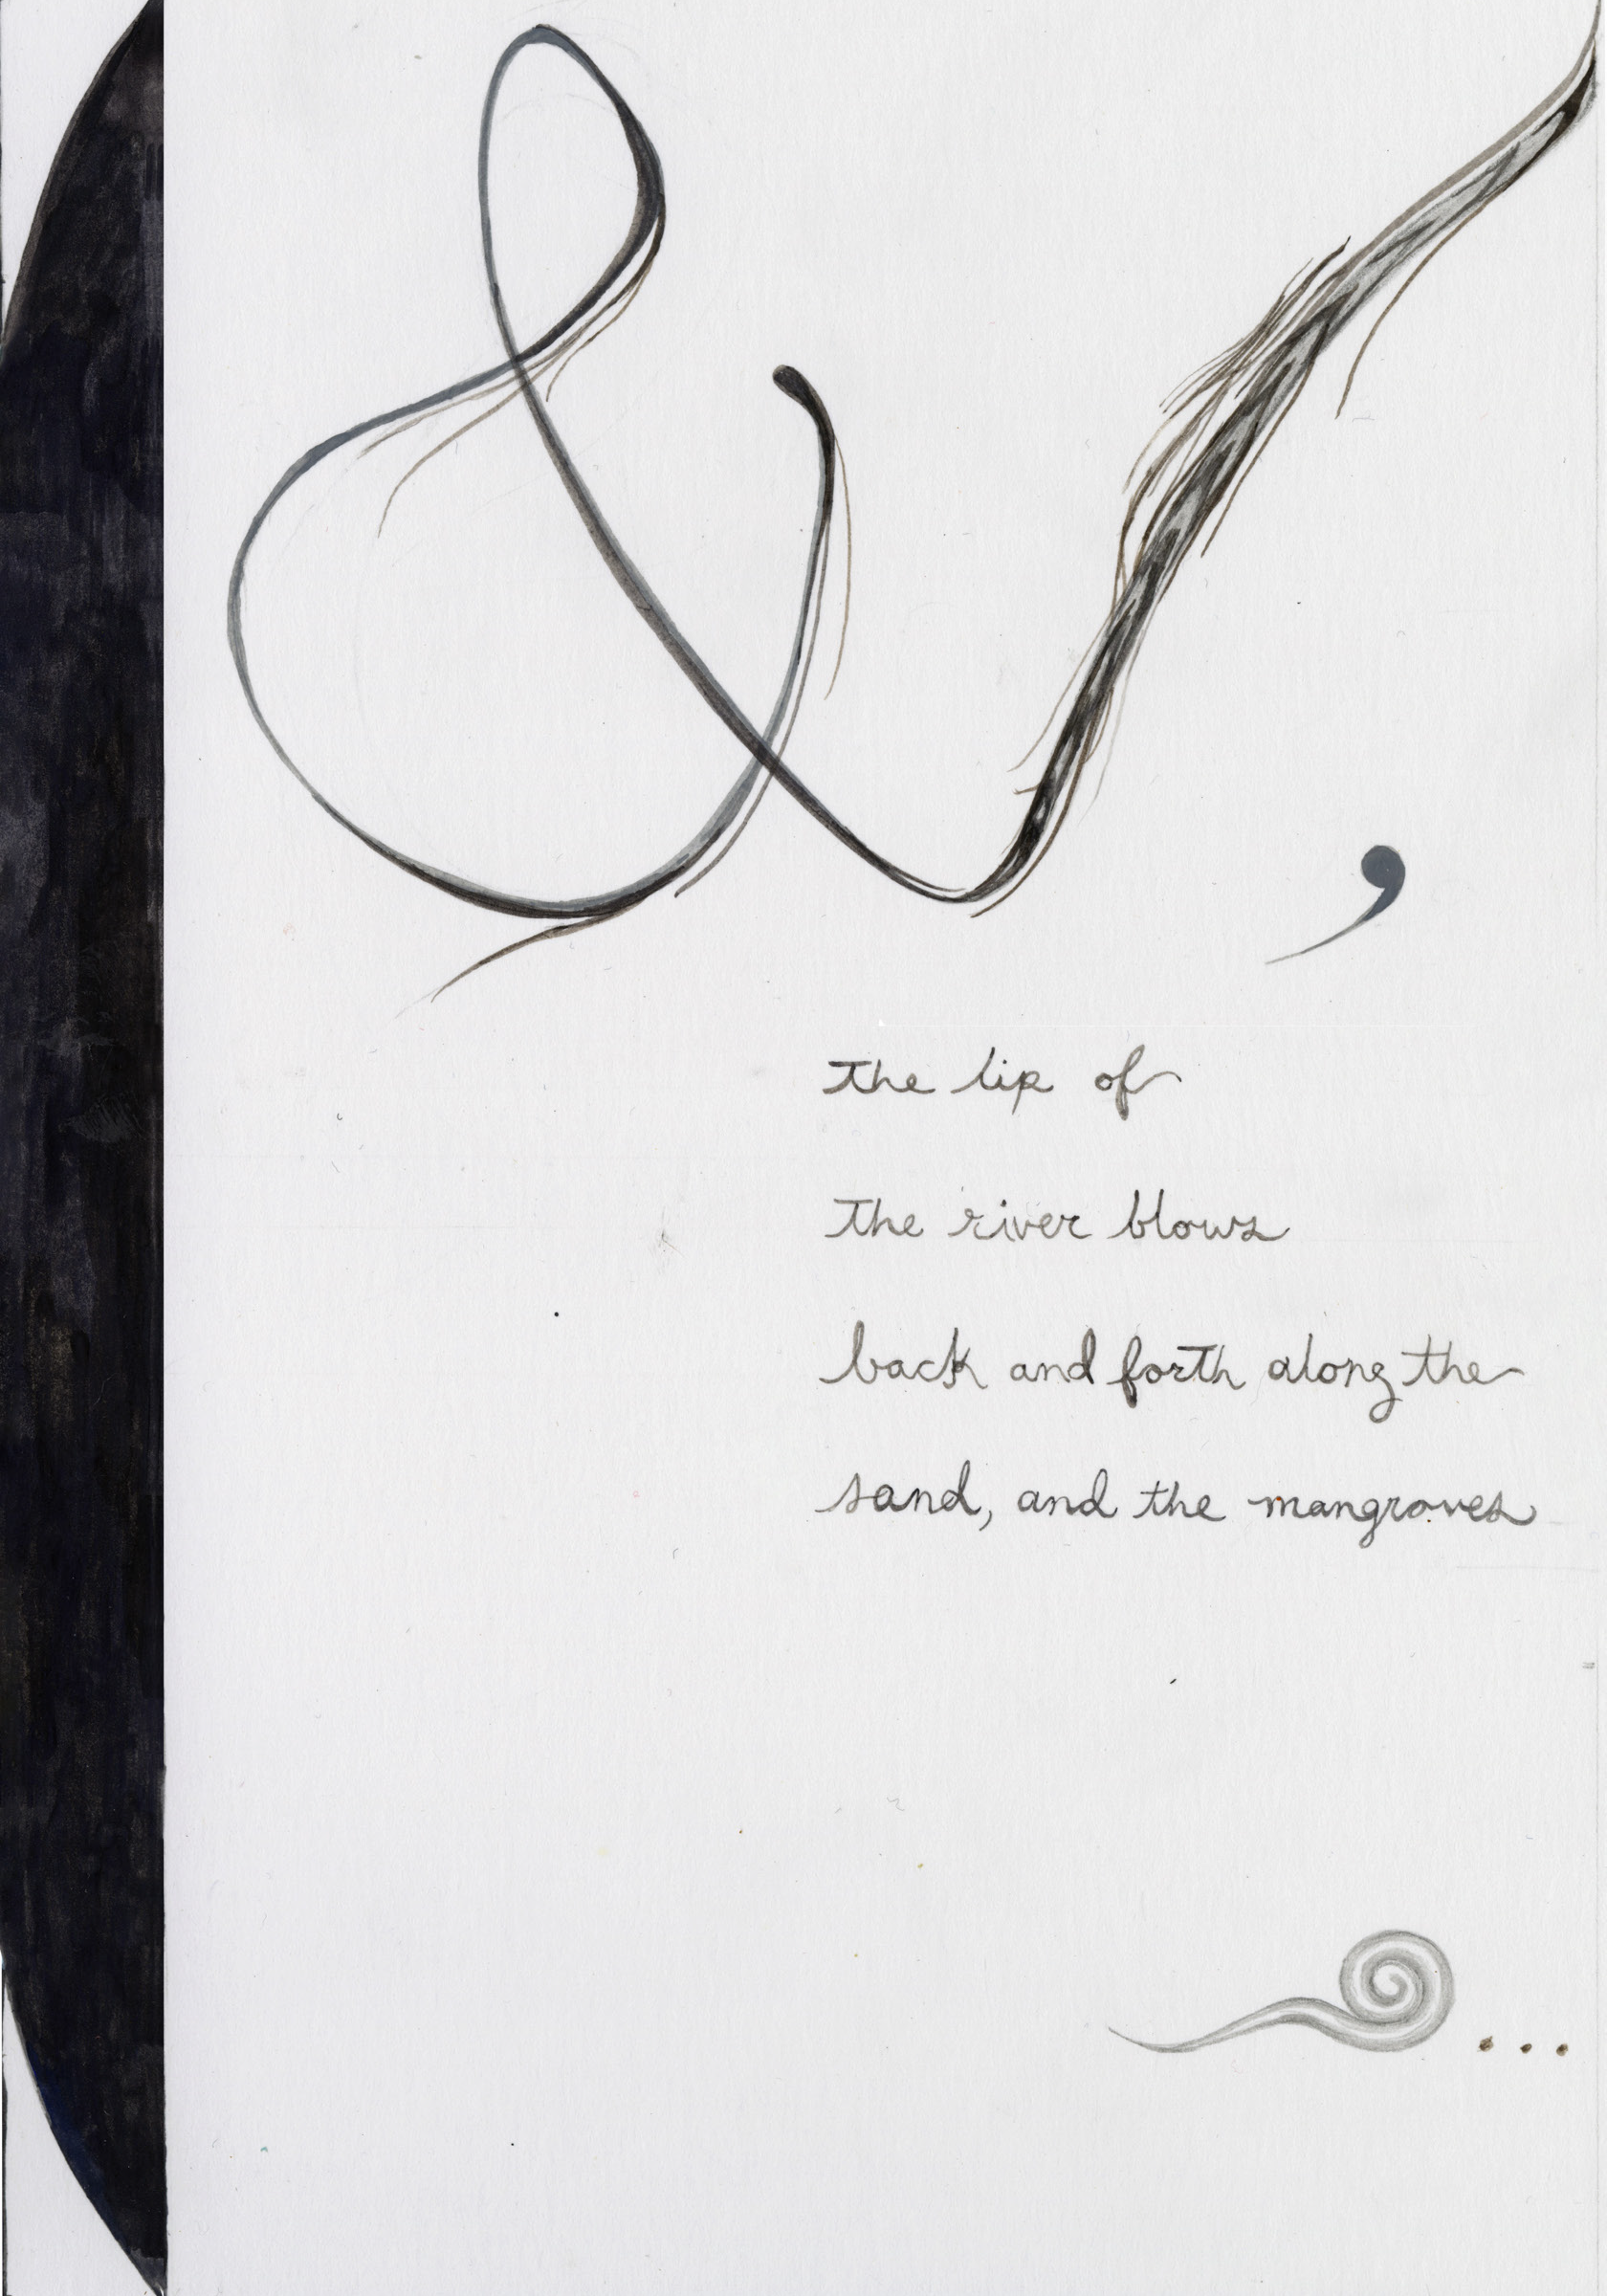 &
,
the lip of
the river blows
back and forth along the
sand, and the mangroves
...